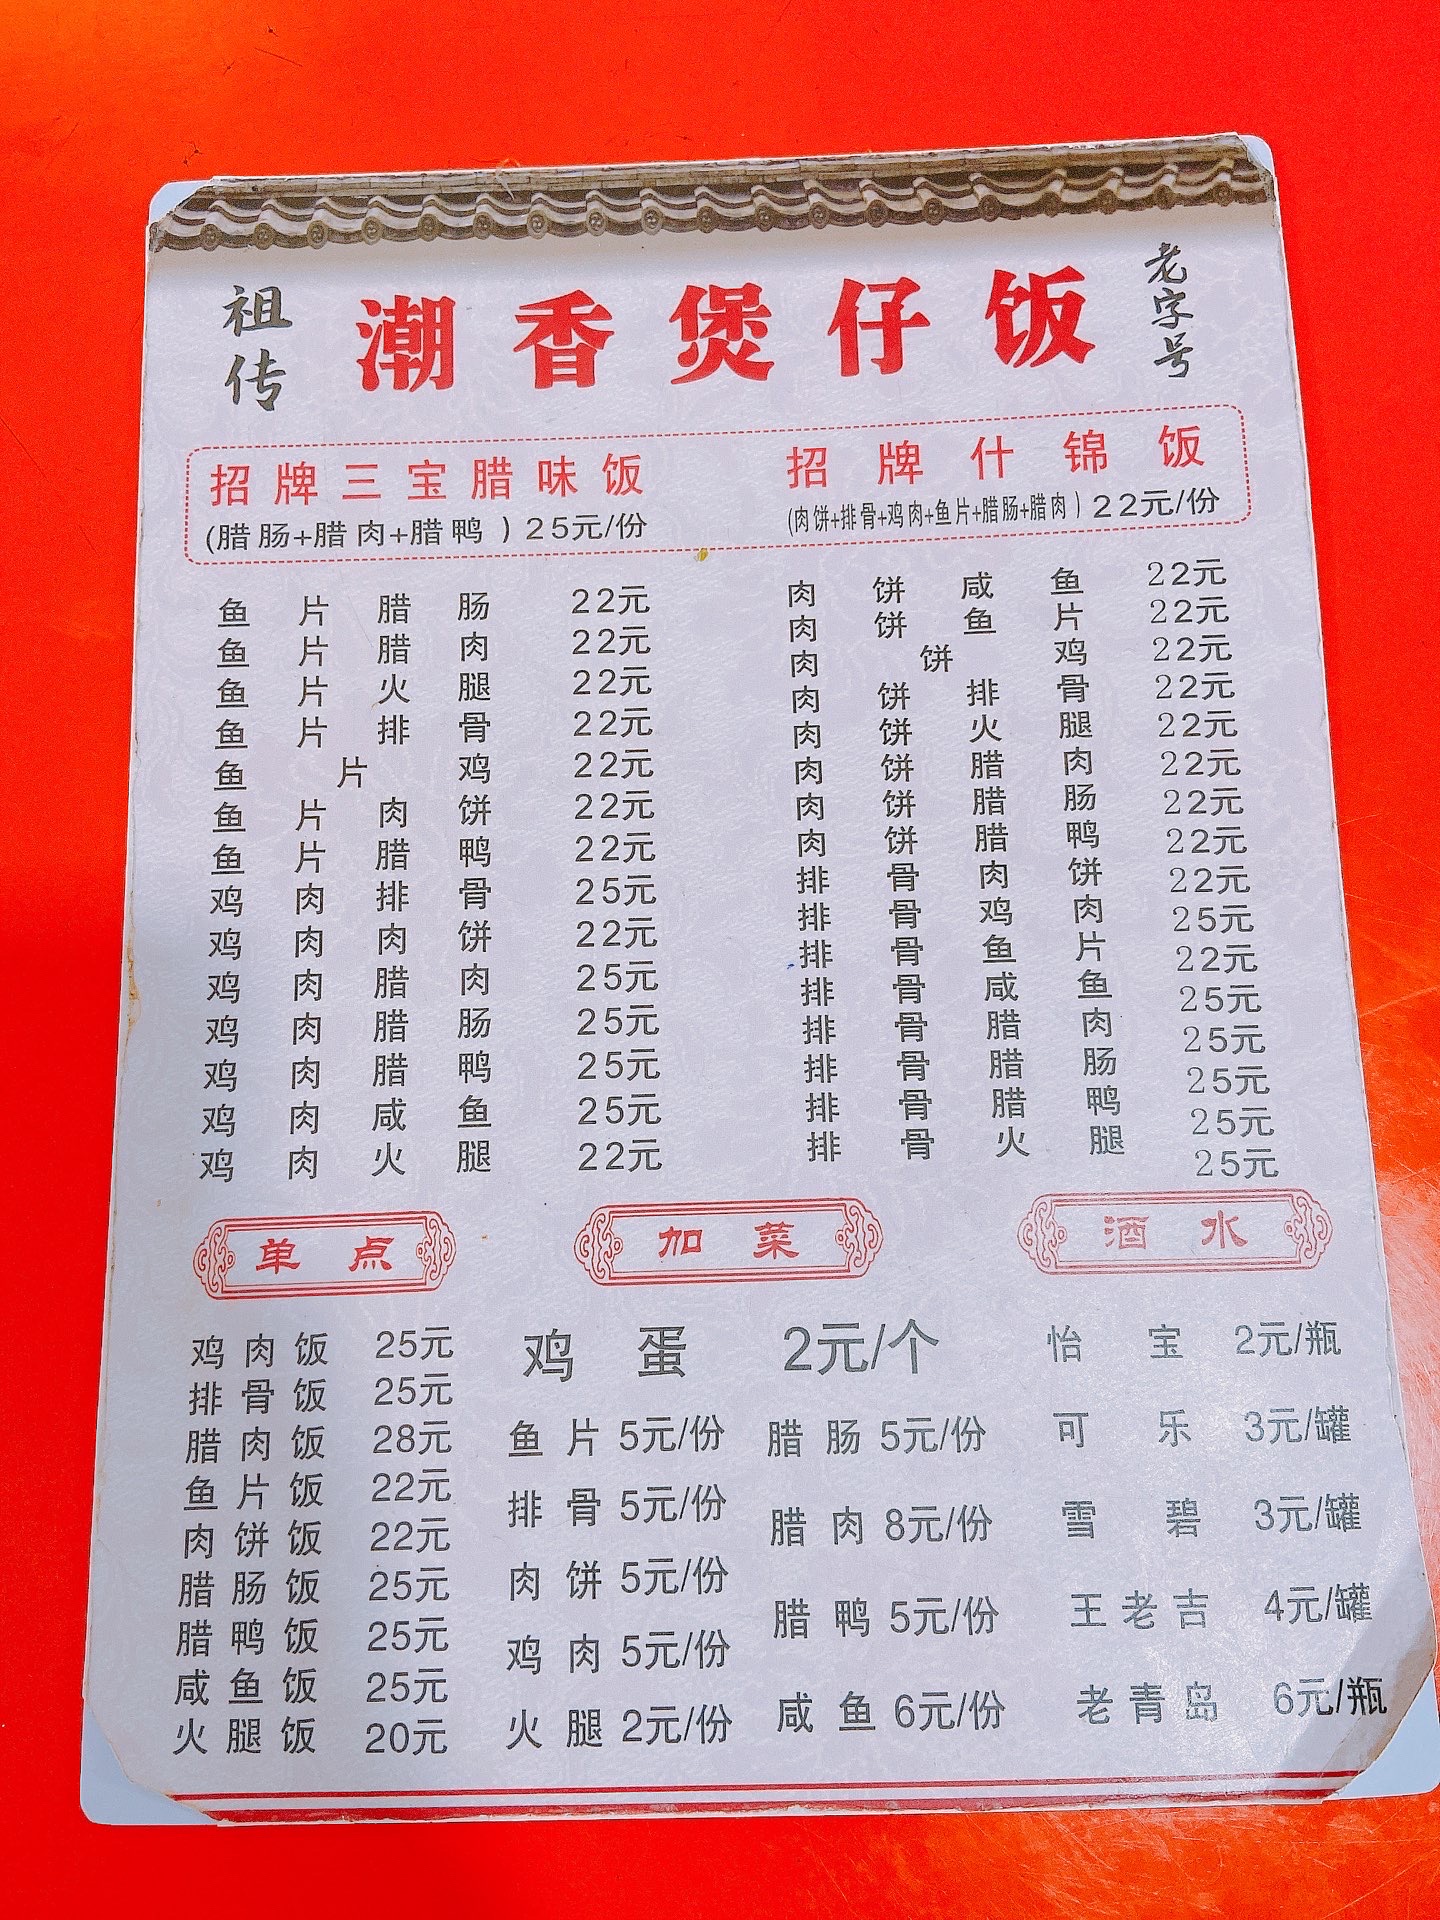 祖传
潮香煲仔饭
老字号
招牌三宝腊味饭
(腊肠+腊肉+腊鸭) 25元/份
招牌什锦饭
(肉饼+排骨+鸡肉+鱼片+腊肠+腊肉) 22元/份
鱼片腊肠 22元
鱼片腊肉 22元
鱼片火腿 22元
鱼片排骨 22元
鱼片鸡 22元
鱼片肉饼 22元
鱼片腊鸭 22元
鸡肉排骨 25元
鸡肉肉饼 22元
鸡肉腊肉 25元
鸡肉腊肠 25元
鸡肉腊鸭 25元
鸡肉咸鱼 25元
鸡肉火腿 22元
肉饼咸鱼 22元
肉饼鱼片 22元
肉饼鸡 22元
肉饼排骨 22元
肉饼火腿 22元
肉饼腊肉 22元
肉饼腊肠 22元
肉饼腊鸭 22元
排骨肉饼 22元
排骨鸡肉 25元
排骨鱼片 22元
排骨咸鱼 25元
排骨腊肉 25元
排骨腊肠 25元
排骨腊鸭 25元
排骨火腿 25元
单点
鸡肉饭 25元
排骨饭 25元
腊肉饭 28元
鱼片饭 22元
肉饼饭 22元
腊肠饭 25元
腊鸭饭 25元
咸鱼饭 25元
火腿饭 20元
加菜
鸡蛋 2元/个
鱼片 5元/份
排骨 5元/份
肉饼 5元/份
鸡肉 5元/份
火腿 2元/份
腊肠 5元/份
腊肉 8元/份
腊鸭 5元/份
咸鱼 6元/份
酒水
怡宝 2元/瓶
可乐 3元/罐
雪碧 3元/罐
王老吉 4元/罐
老青岛 6元/瓶